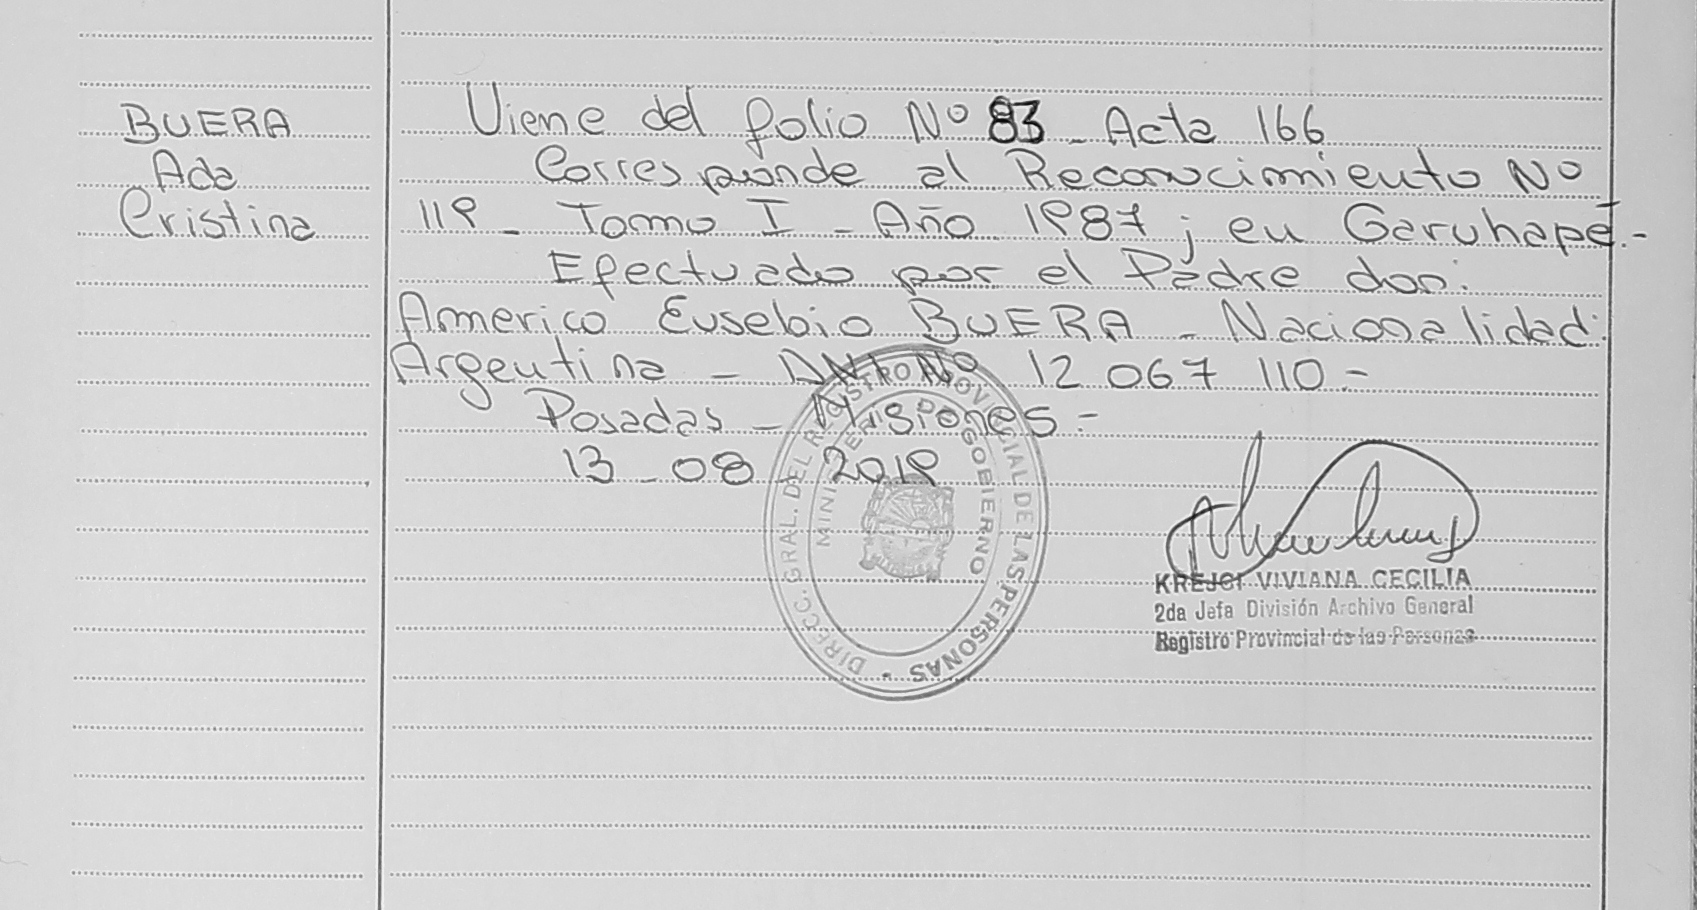 BUERA
Ada
Cristina
Viene del folio Nº 83 - Acta 166
Corresponde al Reconocimiento Nº
119 - Tomo I - Año 1987; en Garuhapé.-
Efectuado por el Padre don:
Americo Eusebio BUERA - Nacionalidad:
Argentina - DNI Nº 12 067 110 -
Posadas - Misiones.-
13 - 08 - 2019
DIRECC. GRAL. DEL REGISTRO PROVINCIAL DE LAS PERSONAS -
MINISTERIO DE GOBIERNO
KREJCI VIVIANA CECILIA
2da Jefa División Archivo General
Registro Provincial de las Personas